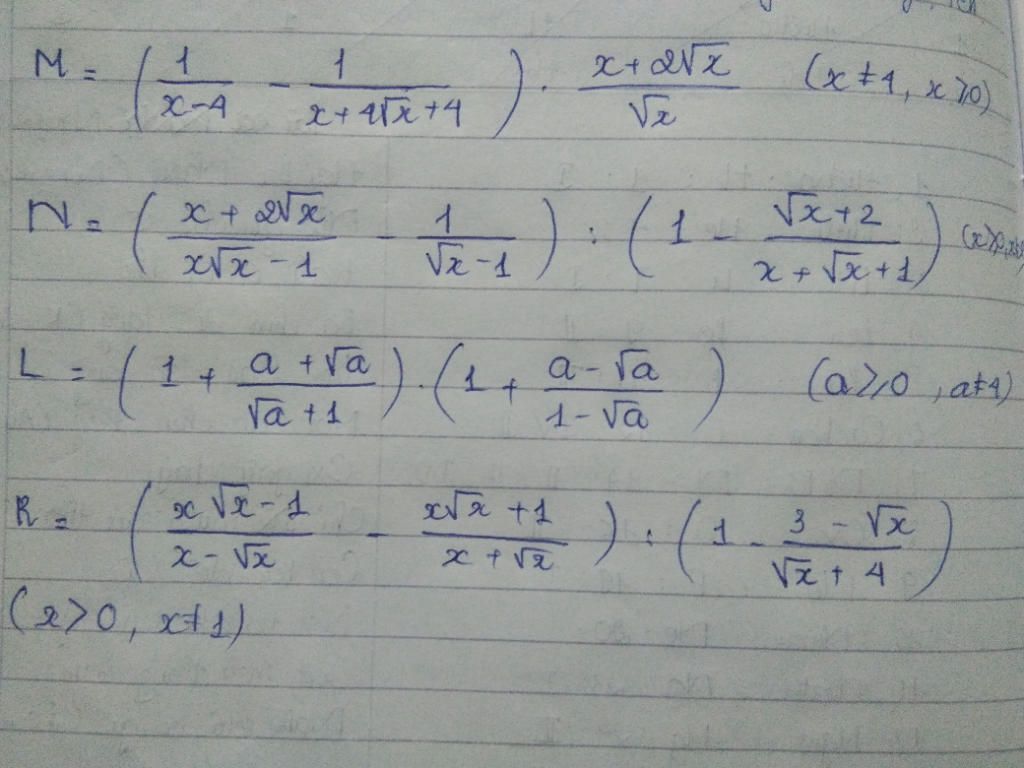 M = (1/(x-4) - 1/(x+4√x+4)) · (x+2√x)/√x (x≠4, x≥0)
N = ((x+2√x)/(x√x-1) - 1/(√x-1)) : (1 - (√x+2)/(x+√x+1))
L = (1 + (a+√a)/(√a+1)) · (1 + (a-√a)/(1-√a)) (a≥0, a≠1)
R = ((x√x-1)/(x-√x) - (x√x+1)/(x+√x)) : (1 - (3-√x)/(√x+4))
(x>0, x≠1)